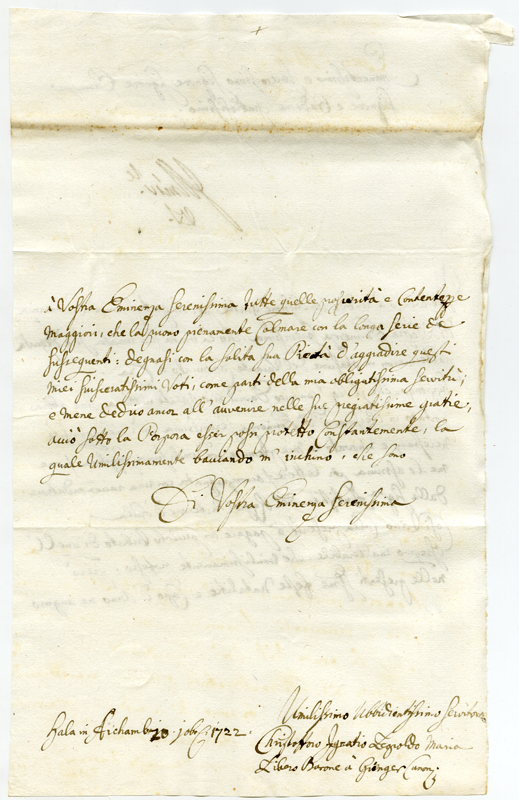 à Vostra Eminenza Serenissima tutte quelle prosperità e Contentezze
Maggiori, che la puono pienamente Colmare con la longa serie de
susseguenti: degnasi con la solita sua Pietà d'aggradire questi
miei suisceratissimi Voti, come parti della mia obligatissima servitù;
e mene dedivo ancor all'avvenire nelle sue pregiatissime gratie,
acciò sotto la Porpora esser possi protetto Constantemente, la
quale Umilissimamente bacciando m'inchino, e le sono
Di Vostra Eminenza Serenissima
Umilissimo Ubbidientissimo Servitore
Hala in 10 Xbre 1722.
Christoforo Ignatio Leopoldo Maria
Libero Barone à Canon: